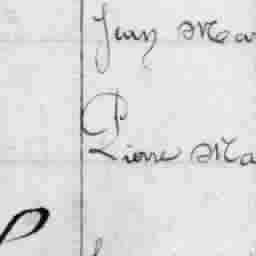 Jean Ma
P
Pierre Ma